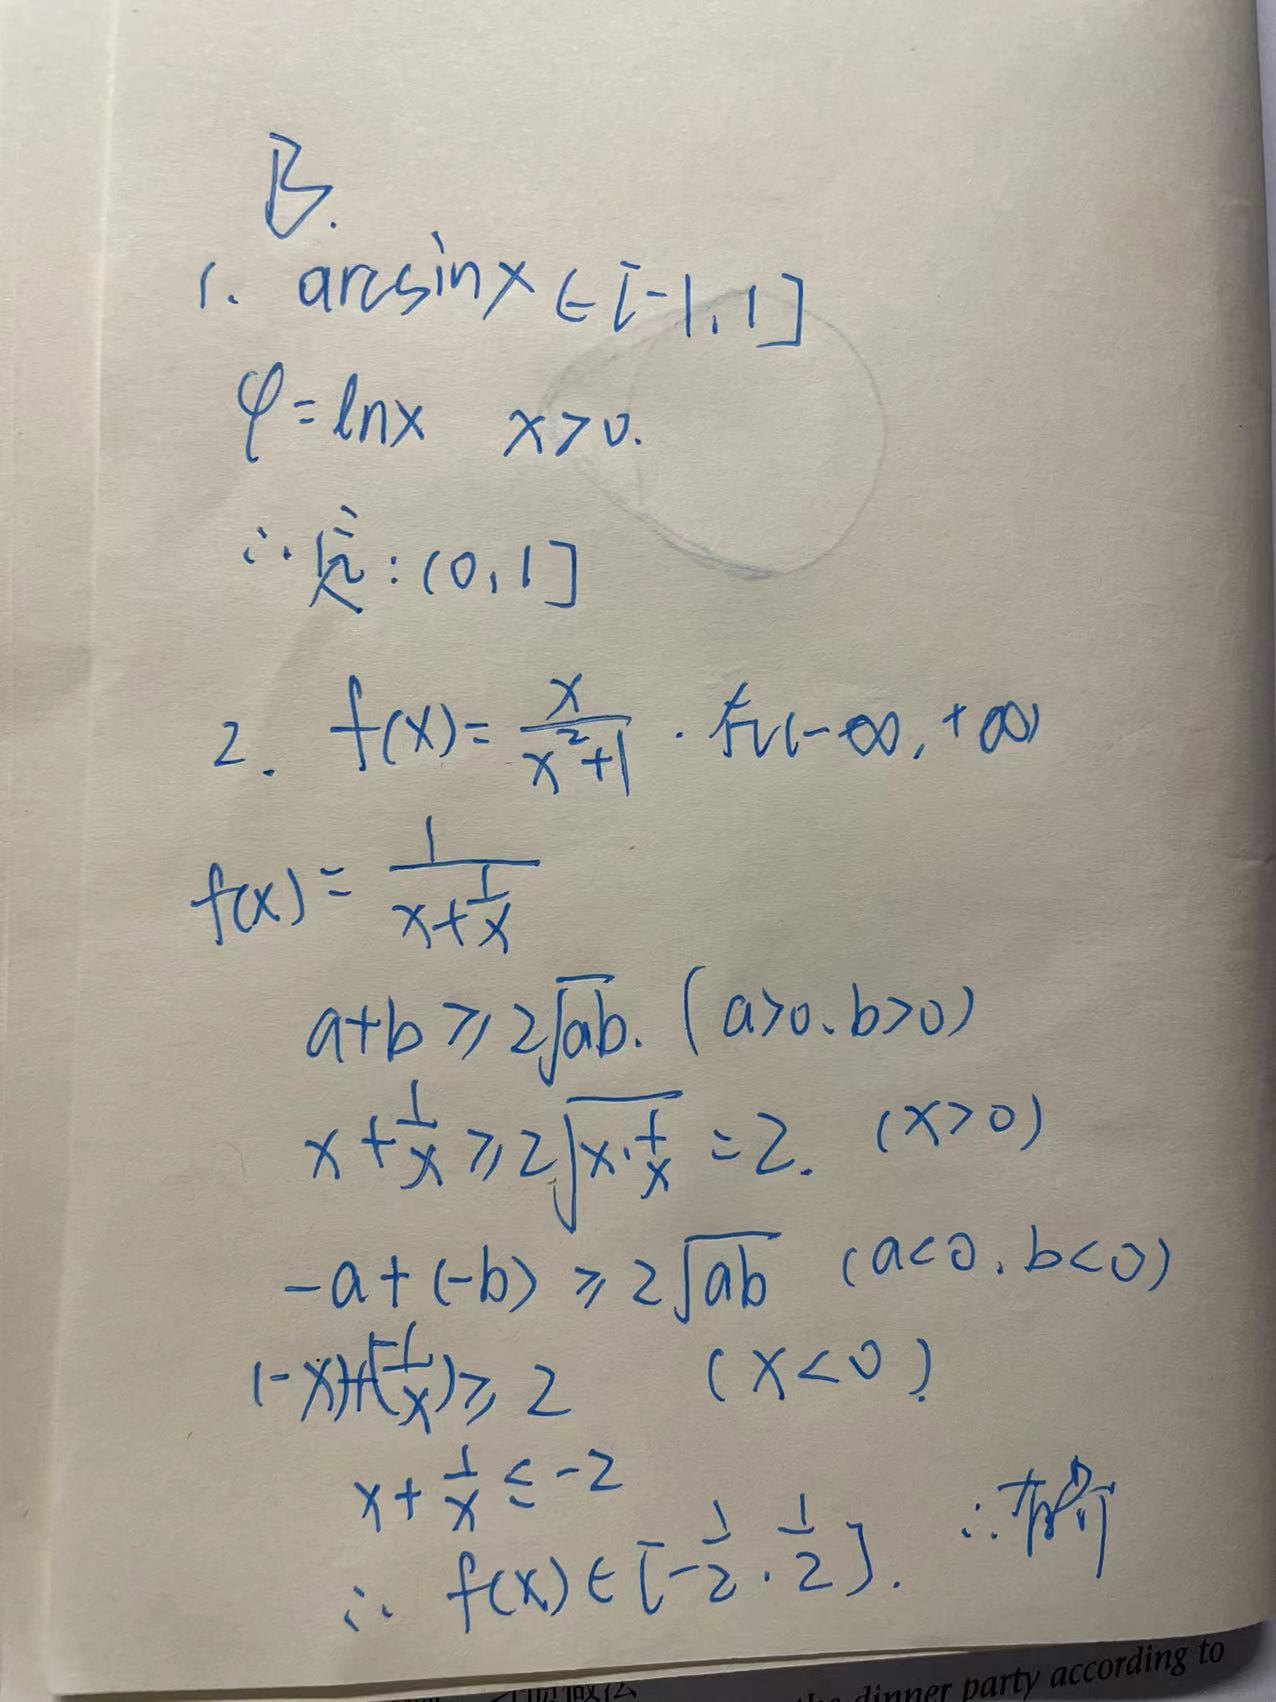 B.
1. arcsinx ∈ [-1, 1]
φ=lnx x>0.
∴定:(0, 1]
2. f(x)= x/(x²+1) . 在(-∞, +∞)
f(x)= 1/(x+1/x)
a+b ≥ 2√ab. (a>0、b>0)
x+1/x ≥ 2√(x·1/x) = 2. (x>0)
-a+(-b) ≥ 2√ab (a<0、b<0)
(-x)+(-1/x) ≥ 2 (x<0)
x+1/x ≤ -2
∴ f(x) ∈ [-1/2, 1/2]. ∴有界
dinner party according to